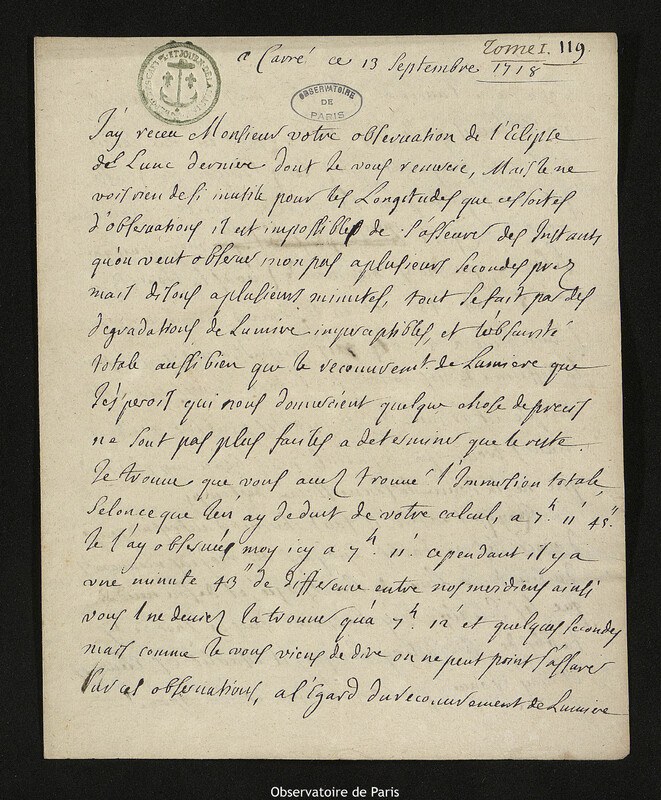 Tome I. 119.
a Carré ce 13 Septembre 1718
OBSERVATOIRE
DE
PARIS
J'ay receu Monsieur votre observation de l'Eclipse
de Lune derniere dont Je vous remercie, Mais Je ne
vois rien de si inutile pour les Longitudes que ces sortes
d'observations il est impossible de s'asseurer des Instants
qu'on veut observer non pas a plusieurs secondes prez
mais disons a plusieurs minutes, tout se fait par des
degradations de Lumiere imperceptibles, et l'obscurité
totale aussi bien que le recouvremt. de Lumiere que
J'esperois qui nous donneroient quelque chose de precis
ne sont pas plus faciles a determiner que le reste.
Je trouve que vous avez trouvé l'Immersion totale
selon ce que J'en ay deduit de votre calcul, a 7h. 11' 45".
Je l'ay observée moy icy a 7h. 11'. cependant il y a
une minute 43" de difference entre nos meridiens ainsi
vous ne deviez la trouver qu'a 7h. 12' et quelques secondes
mais comme Je vous viens de dire on ne peut point s'assurer
sur ces observations, a l'Egard du recouvrement de Lumiere
Observatoire de Paris